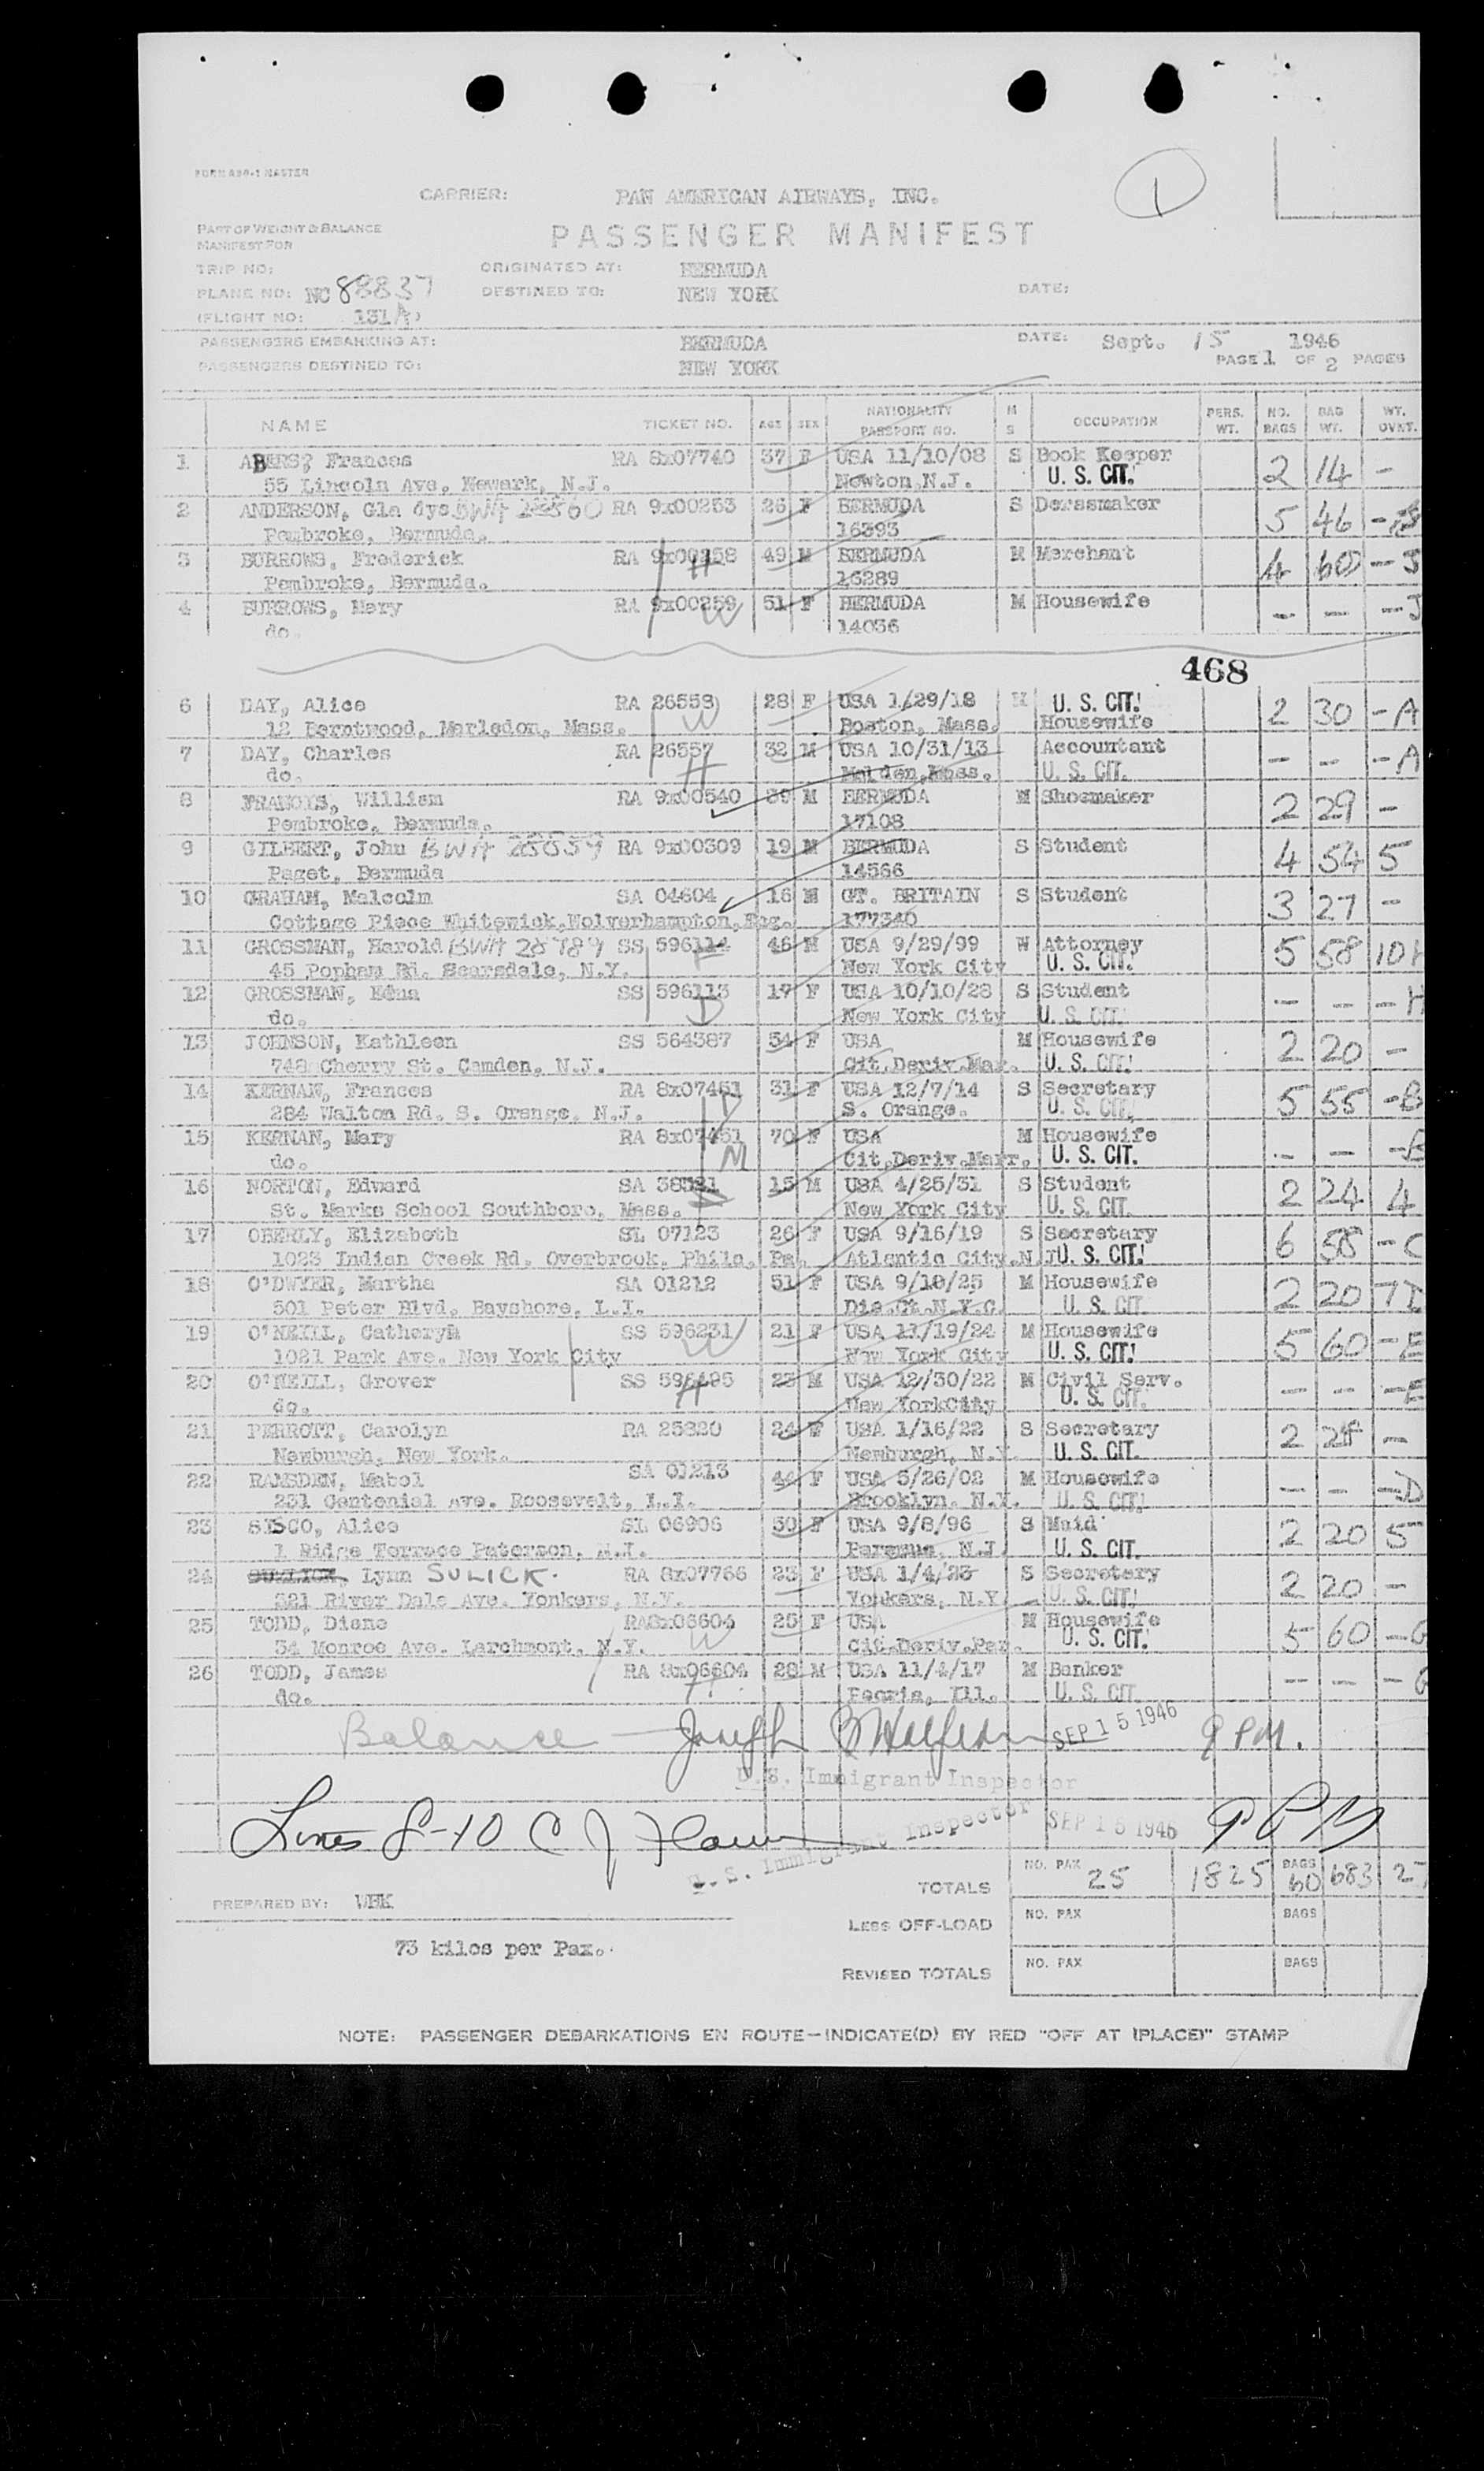 FORM 490-1 MASTER
CARRIER: PAN AMERICAN AIRWAYS, INC.
1
PART OF WEIGHT & BALANCE
MANIFEST FOR
PASSENGER MANIFEST
TRIP NO: ORIGINATED AT: BERMUDA
PLANE NO: NC 88837 DESTINED TO: NEW YORK DATE:
(FLIGHT NO: 131A)
PASSENGERS EMBARKING AT: BERMUDA DATE: Sept. 15 1946
PASSENGERS DESTINED TO: NEW YORK PAGE 1 OF 2 PAGES
NAME TICKET NO. AGE SEX NATIONALITY PASSPORT NO. M S OCCUPATION PERS. WT. NO. BAGS BAG WT. WT. OVWT.
1 ABERS, Frances RA 8x07740 37 F USA 11/10/08 S Book Keeper 2 14 -
55 Lincoln Ave, Newark, N.J. Newton, N.J. U. S. CIT.
2 ANDERSON, Gla dys BWA RA 9x00253 26 F BERMUDA S Derssmaker 5 46 -
Pembroke, Bermuda. 16393
3 BURROWS, Frederick RA 9x00258 49 M BERMUDA M Merchant 4 60 - J
Pembroke, Bermuda. H 16289
4 BURROWS, Mary RA 9x00259 51 F BERMUDA M Housewife - - - J
do. W 14036
468
6 DAY, Alice RA 26558 28 F USA 1/29/18 M U. S. CIT. 2 30 - A
12 Berntwood, Marledon, Mass. W Boston, Mass. Housewife
7 DAY, Charles RA 26557 32 M USA 10/31/13 Accountant - - - A
do. H Malden, Mass. U. S. CIT.
8 FRANCIS, William RA 9x00540 39 M BERMUDA M Shoemaker 2 29 -
Pembroke, Bermuda. 17108
9 GILBERT, John BWA RA 9x00309 19 M BERMUDA S Student 4 54 5
Paget, Bermuda 14566
10 GRAHAM, Malcolm SA 04604 16 M GT. BRITAIN S Student 3 27 -
Cottage Piece Whitewick, Wolverhampton, Eng. 177340
11 GROSSMAN, Harold BWA 28789 SS 596114 46 M USA 9/29/99 W Attorney 5 58 10 H
45 Popham Rd. Scarsdale, N.Y. F New York City U. S. CIT.
12 GROSSMAN, Edna SS 596113 17 F USA 10/10/28 S Student - - - H
do. D New York City U. S. CIT.
13 JOHNSON, Kathleen SS 564387 54 F USA M Housewife 2 20 -
748 Cherry St. Camden, N.J. Cit.Deriv.Mar. U. S. CIT.
14 KERNAN, Frances RA 8x07451 31 F USA 12/7/14 S Secretary 5 55 - B
284 Walton Rd. S. Orange, N.J. D S. Orange. U. S. CIT.
15 KERNAN, Mary RA 8x07451 70 F USA M Housewife - - - B
do. M Cit.Deriv.Marr. U. S. CIT.
16 NORTON, Edward SA 38521 15 M USA 4/25/31 S Student 2 24 4
St. Marks School Southboro, Mass. New York City U. S. CIT.
17 OBERLY, Elizabeth SL 07123 26 F USA 9/16/19 S Secretary 6 58 - C
1023 Indian Creek Rd. Overbrook, Phila. Pa. Atlantic City, N.J. U. S. CIT.
18 O'DWYER, Martha SA 01212 51 F USA 9/10/25 M Housewife 2 20 7 D
501 Peter Blvd. Bayshore, L.I. Dis.Ct.N.Y.C. U. S. CIT.
19 O'NEILL, Catheryn SS 596231 21 F USA 11/19/24 M Housewife 5 60 - E
1021 Park Ave. New York City W New York City U. S. CIT.
20 O'NEILL, Grover SS 596195 23 M USA 12/30/22 M Civil Serv. - - - E
do. H New YorkCity U. S. CIT.
21 PERROTT, Carolyn RA 25820 24 F USA 1/16/22 S Secretary 2 24 -
Newburgh, New York. Newburgh, N.Y. U. S. CIT.
22 RAMSDEN, Mabel SA 01213 44 F USA 5/26/02 M Housewife - - - D
231 Centenial Ave. Roosevelt, L.I. Brooklyn. N.Y. U. S. CIT.
23 SISCO, Alice SL 06906 50 F USA 9/8/96 S Maid 2 20 5
1 Ridge Terrace Paterson, N.J. Paramus, N.J. U. S. CIT.
24 Lynn SULICK. RA 8x07766 23 F USA 1/4/23 S Secretary 2 20 -
321 River Dale Ave. Yonkers, N.Y. Yonkers, N.Y. U. S. CIT.
25 TODD, Diane RA8x06604 25 F USA M Housewife 5 60 - G
34 Monroe Ave. Larchmont, N.Y. W Cit.Deriv.Par. U. S. CIT.
26 TODD, James RA 8x06604 28 M USA 11/4/17 M Banker - - - G
do. H. Peoria, Ill. U. S. CIT.
Balance - Joseph B SEP 15 1946 9 PM.
U.S. Immigrant Inspector
Lines 8-10 C J SEP 15 1946 9 PM
U.S. Immigrant Inspector
TOTALS NO. PAX 25 1825 BAGS 60 683 27
PREPARED BY: WBK
LESS OFF-LOAD NO. PAX BAGS
73 kilos per Pax.
REVISED TOTALS NO. PAX BAGS
NOTE: PASSENGER DEBARKATIONS EN ROUTE—INDICATE(D) BY RED "OFF AT (PLACE)" STAMP